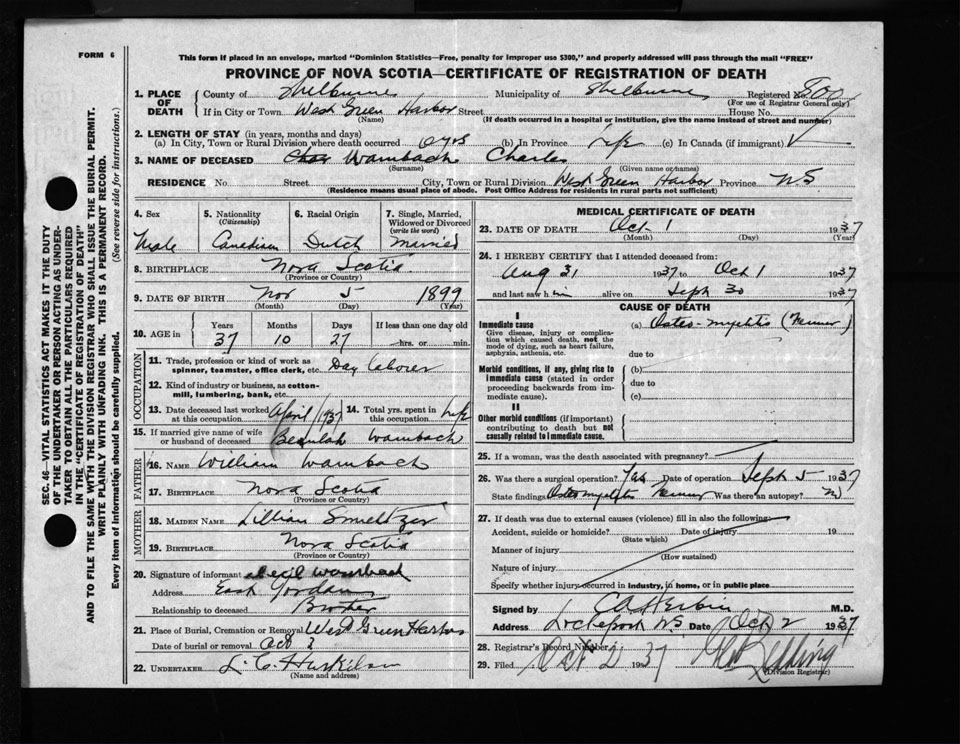 FORM 6
This form if placed in an envelope, marked "Dominion Statistics—Free, penalty for improper use $300," and properly addressed will pass through the mail "FREE"
PROVINCE OF NOVA SCOTIA—CERTIFICATE OF REGISTRATION OF DEATH
SEC. 46—VITAL STATISTICS ACT MAKES IT THE DUTY
OF THE UNDERTAKER OR PERSON ACTING AS UNDER-
TAKER TO OBTAIN ALL THE PARTICULARS REQUIRED
IN THE "CERTIFICATE OF REGISTRATION OF DEATH"
AND TO FILE THE SAME WITH THE DIVISION REGISTRAR WHO SHALL ISSUE THE BURIAL PERMIT.
WRITE PLAINLY WITH UNFADING INK. THIS IS A PERMANENT RECORD.
Every item of information should be carefully supplied. (See reverse side for instructions.)
1. PLACE OF DEATH County of Shelburne Municipality of Shelburne Registered No.
(For use of Registrar General only)
If in City or Town West Green Harbor Street House No.
(Name) (If death occurred in a hospital or institution, give the name instead of street and number)
2. LENGTH OF STAY (in years, months and days)
(a) In City, Town or Rural Division where death occurred yrs (b) In Province life (c) In Canada (if immigrant)
3. NAME OF DECEASED Wambach Charles
(Surname) (Given name or names)
RESIDENCE No. Street City, Town or Rural Division West Green Harbor Province N.S
(Residence means usual place of abode. Post Office Address for residents in rural parts not sufficient)
4. Sex Male
5. Nationality (Citizenship) Canadian
6. Racial Origin Dutch
7. Single, Married, Widowed or Divorced (write the word) Married
8. BIRTHPLACE Nova Scotia
(Province or Country)
9. DATE OF BIRTH Nov 5 1899
(Month) (Day) (Year)
10. AGE in Years 37 Months 10 Days 27 If less than one day hrs. or min.
OCCUPATION
11. Trade, profession or kind of work as spinner, teamster, office clerk, etc. Day laborer
12. Kind of industry or business, as cotton-mill, lumbering, bank, etc.
13. Date deceased last worked at this occupation April 1937 14. Total yrs. spent in this occupation life
15. If married give name of wife or husband of deceased Beaulah Wambach
FATHER
16. NAME William Wambach
17. BIRTHPLACE Nova Scotia
(Province or Country)
MOTHER
18. MAIDEN NAME Lillian Smeltzer
19. BIRTHPLACE Nova Scotia
(Province or Country)
20. Signature of informant Cecil Wambach
Address East Jordan
Relationship to deceased Brother
21. Place of Burial, Cremation or Removal West Green Harbor
Date of burial or removal Oct 3
22. UNDERTAKER
(Name and address)
MEDICAL CERTIFICATE OF DEATH
23. DATE OF DEATH Oct 1 1937
(Month) (Day) (Year)
24. I HEREBY CERTIFY that I attended deceased from:
Aug 31 1937 to Oct 1 1937
and last saw him alive on Sept 30 1937
CAUSE OF DEATH
I
Immediate cause
Give disease, injury or complication which caused death, not the mode of dying, such as heart failure, asphyxia, asthenia, etc.
(a) Osteo-myelitis (Femur)
due to
Morbid conditions, if any, giving rise to immediate cause (stated in order proceeding backwards from immediate cause).
(b)
due to
(c)
II
Other morbid conditions (if important) contributing to death but not causally related to immediate cause.
25. If a woman, was the death associated with pregnancy?
26. Was there a surgical operation? Yes Date of operation Sept 5 1937
State findings Osteomyelitis Femur Was there an autopsy? No
27. If death was due to external causes (violence) fill in also the following:
Accident, suicide or homicide? Date of injury 19
(State which)
Manner of injury
(How sustained)
Nature of injury
Specify whether injury occurred in industry, in home, or in public place
Signed by M.D.
Address Lockeport NS Date Oct 2 1937
28. Registrar's Record Number
29. Filed Oct 2 1937
(Division Registrar)